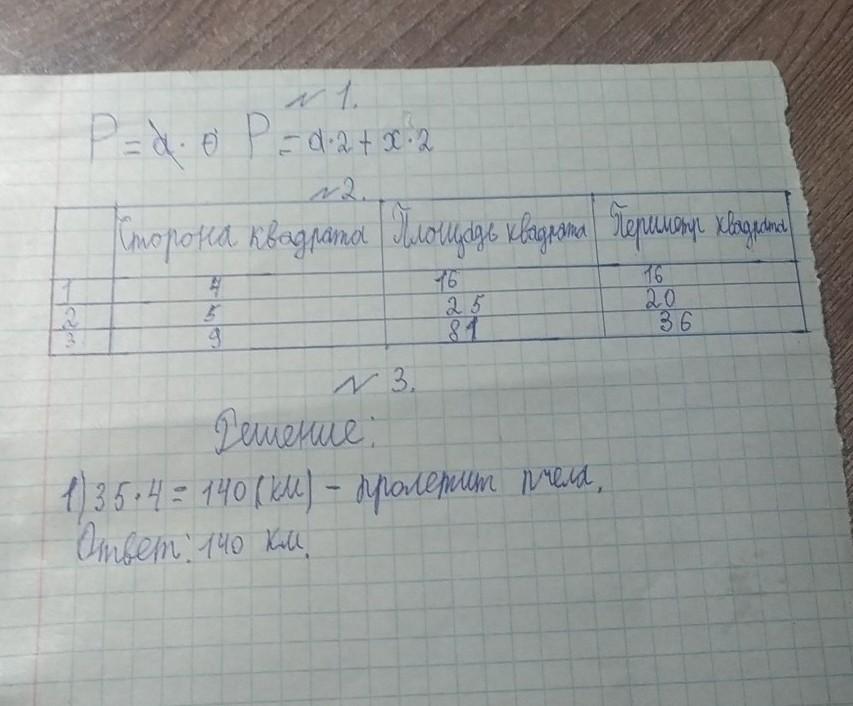 № 1.
P = a · P = a·2 + x·2
№2.
Сторона квадрата Площадь квадрата Периметр квадрата
1 4 16 16
2 5 25 20
3 9 81 36
№ 3.
Решение:
1) 35·4 = 140 (км) – пролетит пчела.
Ответ: 140 км.